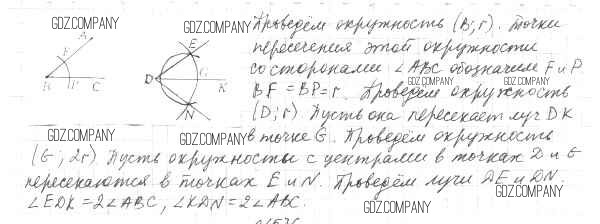 GDZ.COMPANY
GDZ.COMPANY
Проведём окружность (B; r). Точки
пересечения этой окружности
со сторонами ∠ABC обозначим F и P
GDZ.COMPANY
GDZ.COMPANY
BF = BP = r. Проведём окружность
(D; r). Пусть она пересекает луч DK
GDZ.COMPANY
GDZ.COMPANY
в точке G. Проведём окружность
(G; 2r). Пусть окружности с центрами в точках D и G
пересекаются в точках E и N. Проведём лучи DE и DN.
∠EDK = 2∠ABC, ∠KDN = 2∠ABC.
GDZ.COMPANY
GDZ.COMPANY
A
F
B
P
C
E
D
G
K
N